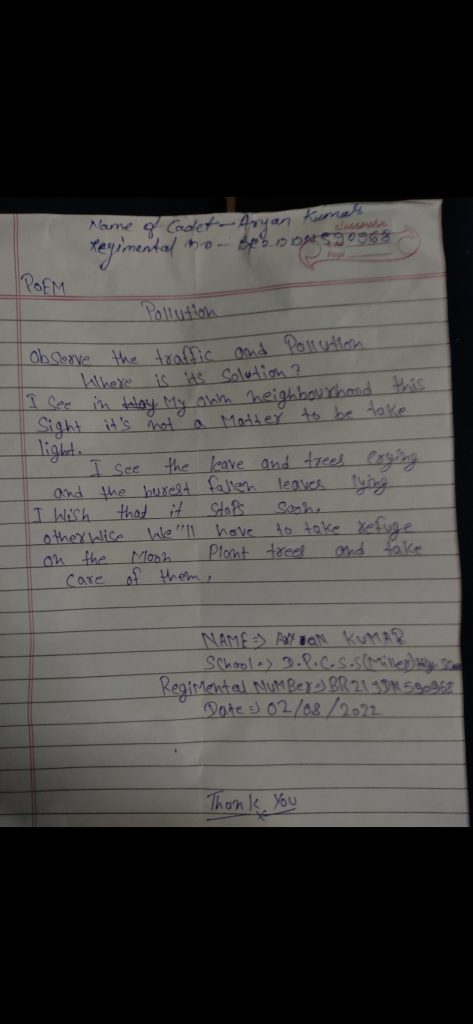 Name of Cadet - Aryan Kumar
Regimental no - 590968
Page
POEM
Pollution
Observe the traffic and Pollution
Where is its Solution?
I See in My own neighbourhood this
Sight it's not a Matter to be take
light.
I see the leave and trees Crying
and the burest fallen leaves lying
I Wish that it Stops Soon.
otherwise We"ll have to take refuge
on the Moon Plant trees and take
Care of them,
NAME => KUMAR
School => D.P.C.S.S (Miller) High
Regimental Number => BR21JDN590968
Date => 02/08/2022
Thank You